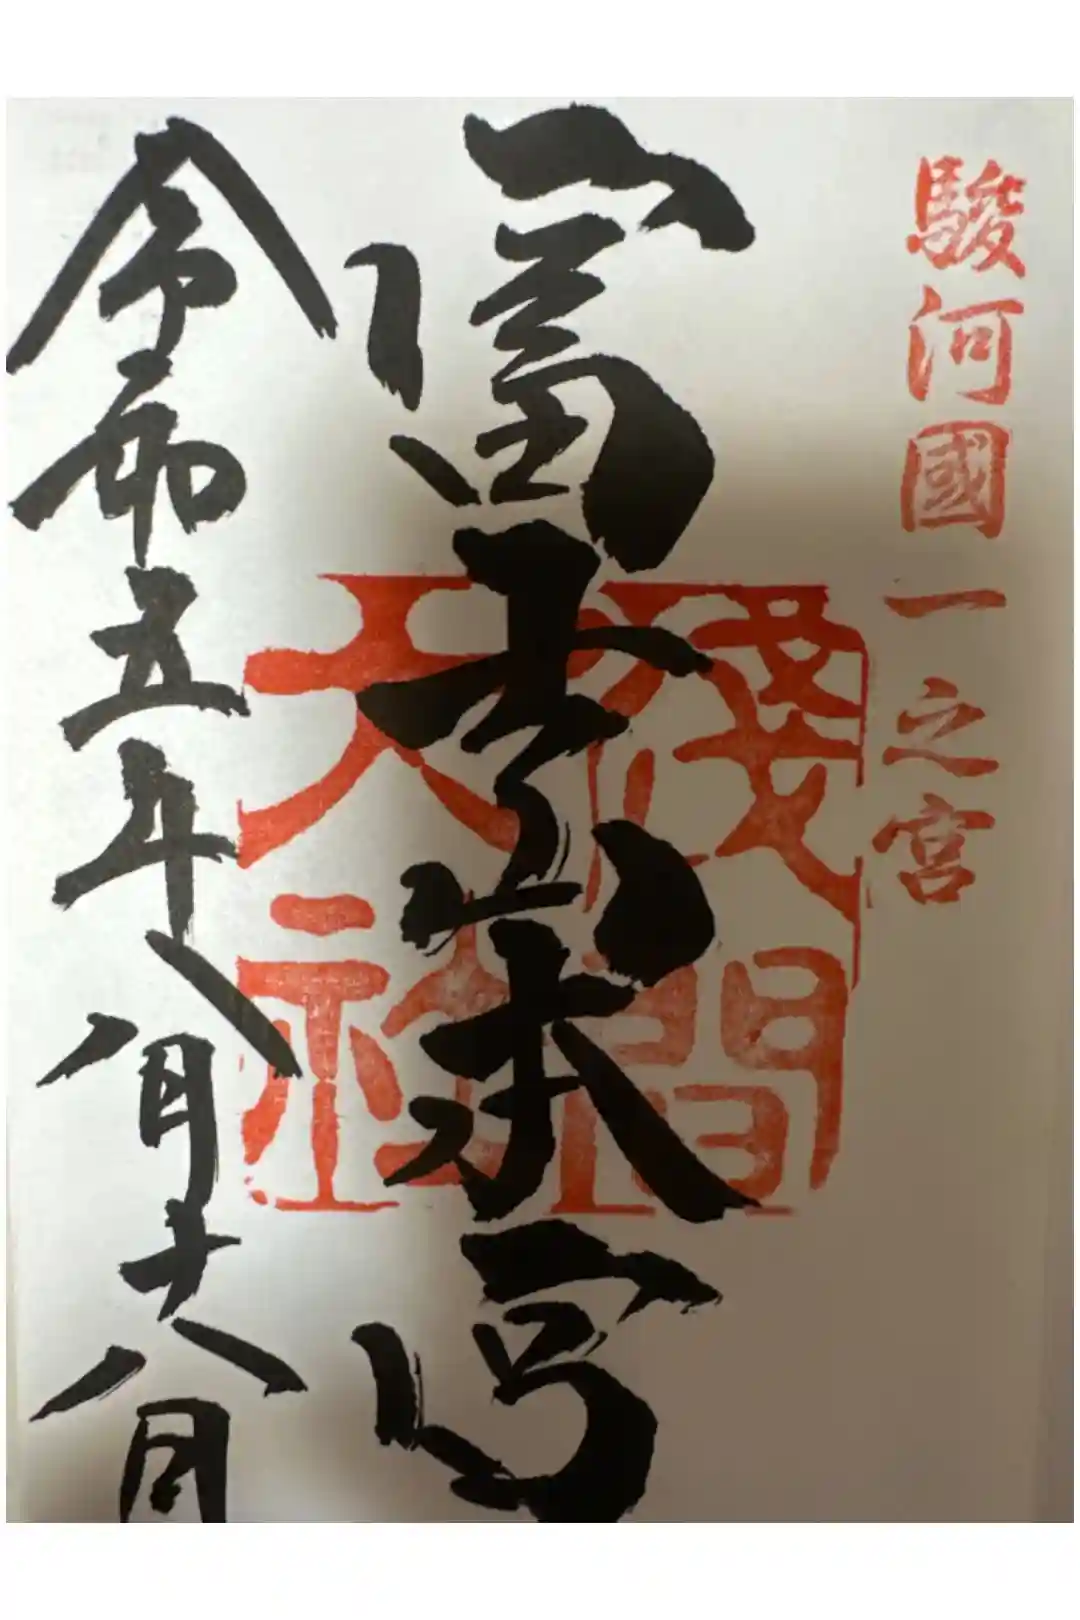 駿河國一之宮
富士山本宮
淺間大社
令和五年八月十八日